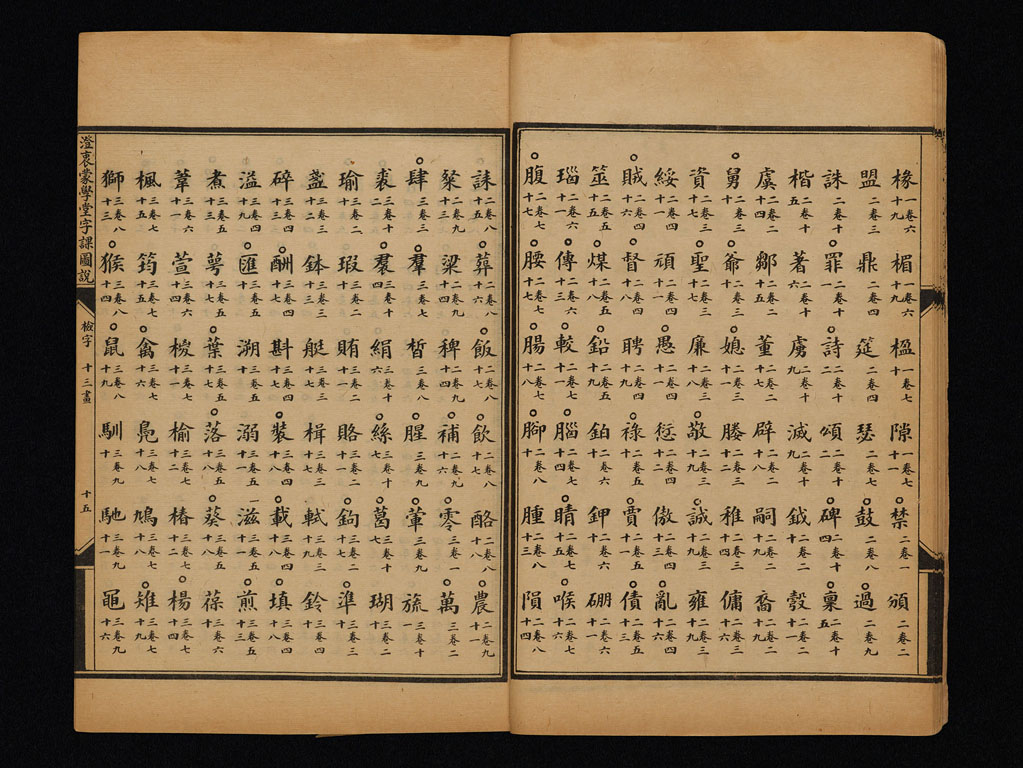 椽一卷六十九 楣一卷六十九 楹一卷七十九 隙一卷七十一 禁二卷一 頒二卷二
盟二卷三 鼎二卷四 筳二卷四 瑟二卷七 鼓二卷八 過二卷九
誅二卷十 罪二卷十一 詩二卷十二 頌二卷十二 碑二卷十四 稟二卷十五
楷二卷二五 著二卷二六 虜二卷二九 滅二卷二九 鉞二卷二十 彀二卷二十一
虞二卷二十四 鄒二卷二十五 董二卷二十七 辟二卷二十八 嗣二卷二十九 裔二卷二十九
舅二卷三十 爺二卷三十 媳二卷三十一 媵二卷三十二 稚二卷三十四 傭二卷三十六
資二卷三十七 聖二卷三十七 廉二卷三十八 敬二卷三十九 誠二卷三十九 雍二卷三十九
綏二卷四十一 頑二卷四十一 愚二卷四十一 愆二卷四十二 傲二卷四十三 亂二卷四十六
賊二卷四十六 督二卷四十八 聘二卷四十九 祿二卷四十九 賈二卷六十一 債二卷六十三
筮二卷六十五 煤二卷六十八 鉛二卷六十九 鉑二卷六十九 鉀二卷六十 硼二卷七十一
瑙二卷七十一 傳二卷七十三 較二卷七十一 腦二卷七十四 睛二卷七十五 喉二卷七十六
腹二卷七十七 腰二卷七十七 腸二卷七十八 腳二卷八十 腫二卷八十三 隕二卷八十四
誄二卷八十五 葬二卷八十六 飯二卷八十七 飲二卷八十七 酪二卷八十八 農二卷九十一
粲二卷九十三 粱二卷九十四 稗二卷九十四 補二卷九十六 零三卷一 萬三卷二
肆三卷三 羣三卷七 晳三卷八 腥三卷九 葷三卷九 旒三卷十一
裘三卷十二 裠三卷十四 絹三卷十六 絲三卷十七 葛三卷十七 瑚三卷二十
瑜三卷二十 瑕三卷二十 賄三卷二十一 賂三卷二十一 鉤三卷二十七 準三卷三十
盞三卷三十二 鉢三卷三十三 艇三卷三十七 楫三卷三十七 軾三卷三十九 鈴三卷四十五
碎三卷四十三 酬三卷四十七 斟三卷四十七 裝三卷四十八 載三卷四十八 填三卷四十八
溢三卷四十九 匯三卷五十 溯三卷五十 溺三卷五十一 滋三卷五十一 煎三卷五十三
煮三卷五十三 萼三卷五十七 葉三卷五十七 落三卷五十八 葵三卷五十八 葆三卷六十
葦三卷六十一 萱三卷六十四 椶三卷七十一 榆三卷七十二 椿三卷七十二 楊三卷七十四
楓三卷七十五 筠三卷七十五 禽三卷七十六 鳧三卷七十八 鳩三卷七十八 雉三卷七十九
獅三卷八十三 猴三卷八十四 鼠三卷八十九 馴三卷九十 馳三卷九十一 黽三卷九十六
澄衷蒙學堂字課圖說 檢字 十三畫 十五